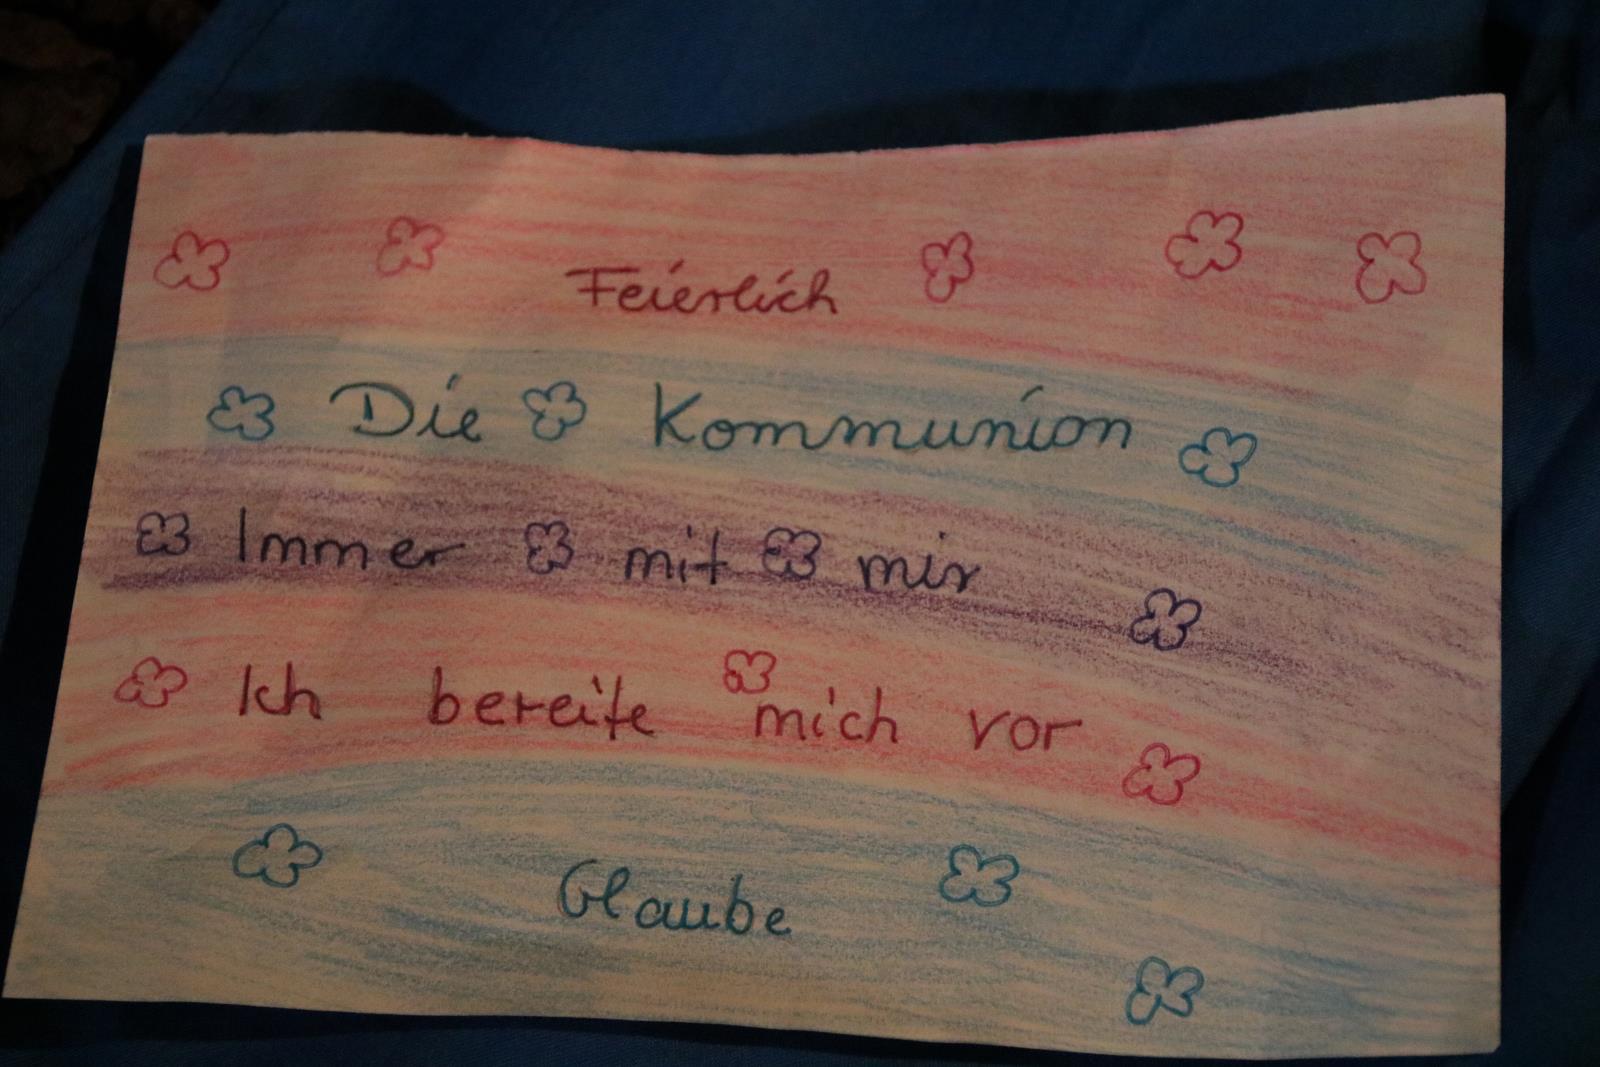 Feierlich
Die Kommunion
Immer mit mir
Ich bereite mich vor
Glaube